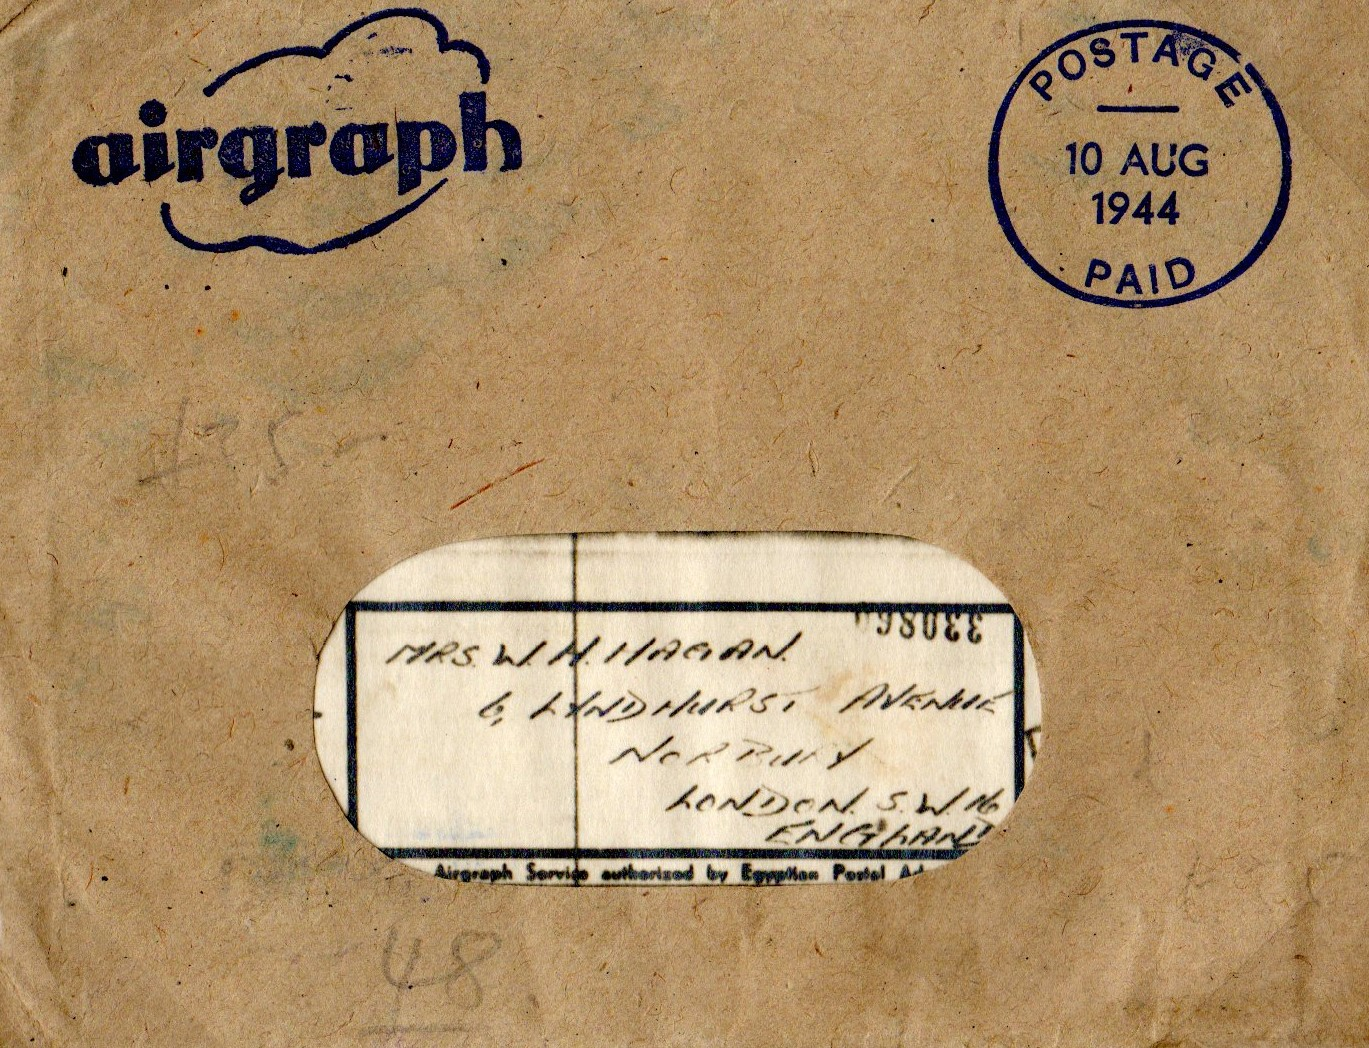 airgraph
POSTAGE
10 AUG
1944
PAID
33086
MRS. W. H. HAGAN.
6, LYNDHURST AVENUE
NORBURY
LONDON. S.W.16
ENGLAND
Airgraph Service authorized by Egyptian Postal
48